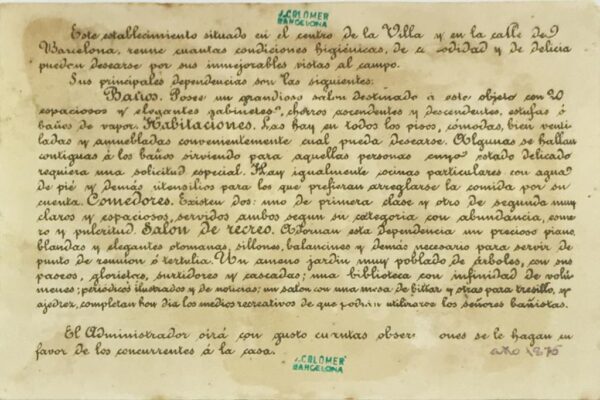 J. COLOMER
BARCELONA
Este establecimiento situado en el centro de la Villa y en la calle de
Barcelona, reune cuantas condiciones higiénicas, de odidad y de delicia
puedan desearse por sus inmejorables vistas al campo.
Sus principales dependencias son las siguientes:
Baños. Posee un grandioso salon destinado á este objeto con 20
espaciosos y elegantes gabinetes, chorros ascendentes y descendentes, estufas ó
baños de vapor. Habitaciones. Las hay en todos los pisos, cómodas, bien venti-
ladas y amuebladas convenientemente cual pueda desearse. Algunas se hallan
contiguas á los baños sirviendo para aquellas personas cuyo estado delicado
requiera una solicitud especial. Hay igualmente cocinas particulares con agua
de pié y demás utensilios para los que prefieran arreglarse la comida por su
cuenta. Comedores. Existen dos: uno de primera clase y otro de segunda muy
claros y espaciosos, servidos ambos segun su categoria con abundáncia, esme
ro y pulcritud. Salon de recreo. Adornan esta dependencia un precioso piano,
blandas y elegantes otomanas, sillones, balancines y demás necesario para servir de
punto de reunion ó tertulia. Un ameno jardin muy poblado de árboles, con sus
paseos, glorietas, surtidores y cascadas; una biblioteca con infinidad de volú
menes; periódicos ilustrados y de noticias; un salon con una mesa de billar y otras para tresillo, y
ajedrez, completan hoy dia los medios recreativos de que podrán utilizarse los señores bañistas.
El Administrador oirá con gusto cuantas obser ones se le hagan en
favor de los concurrentes á la casa. año 1876
J. COLOMER
BARCELONA